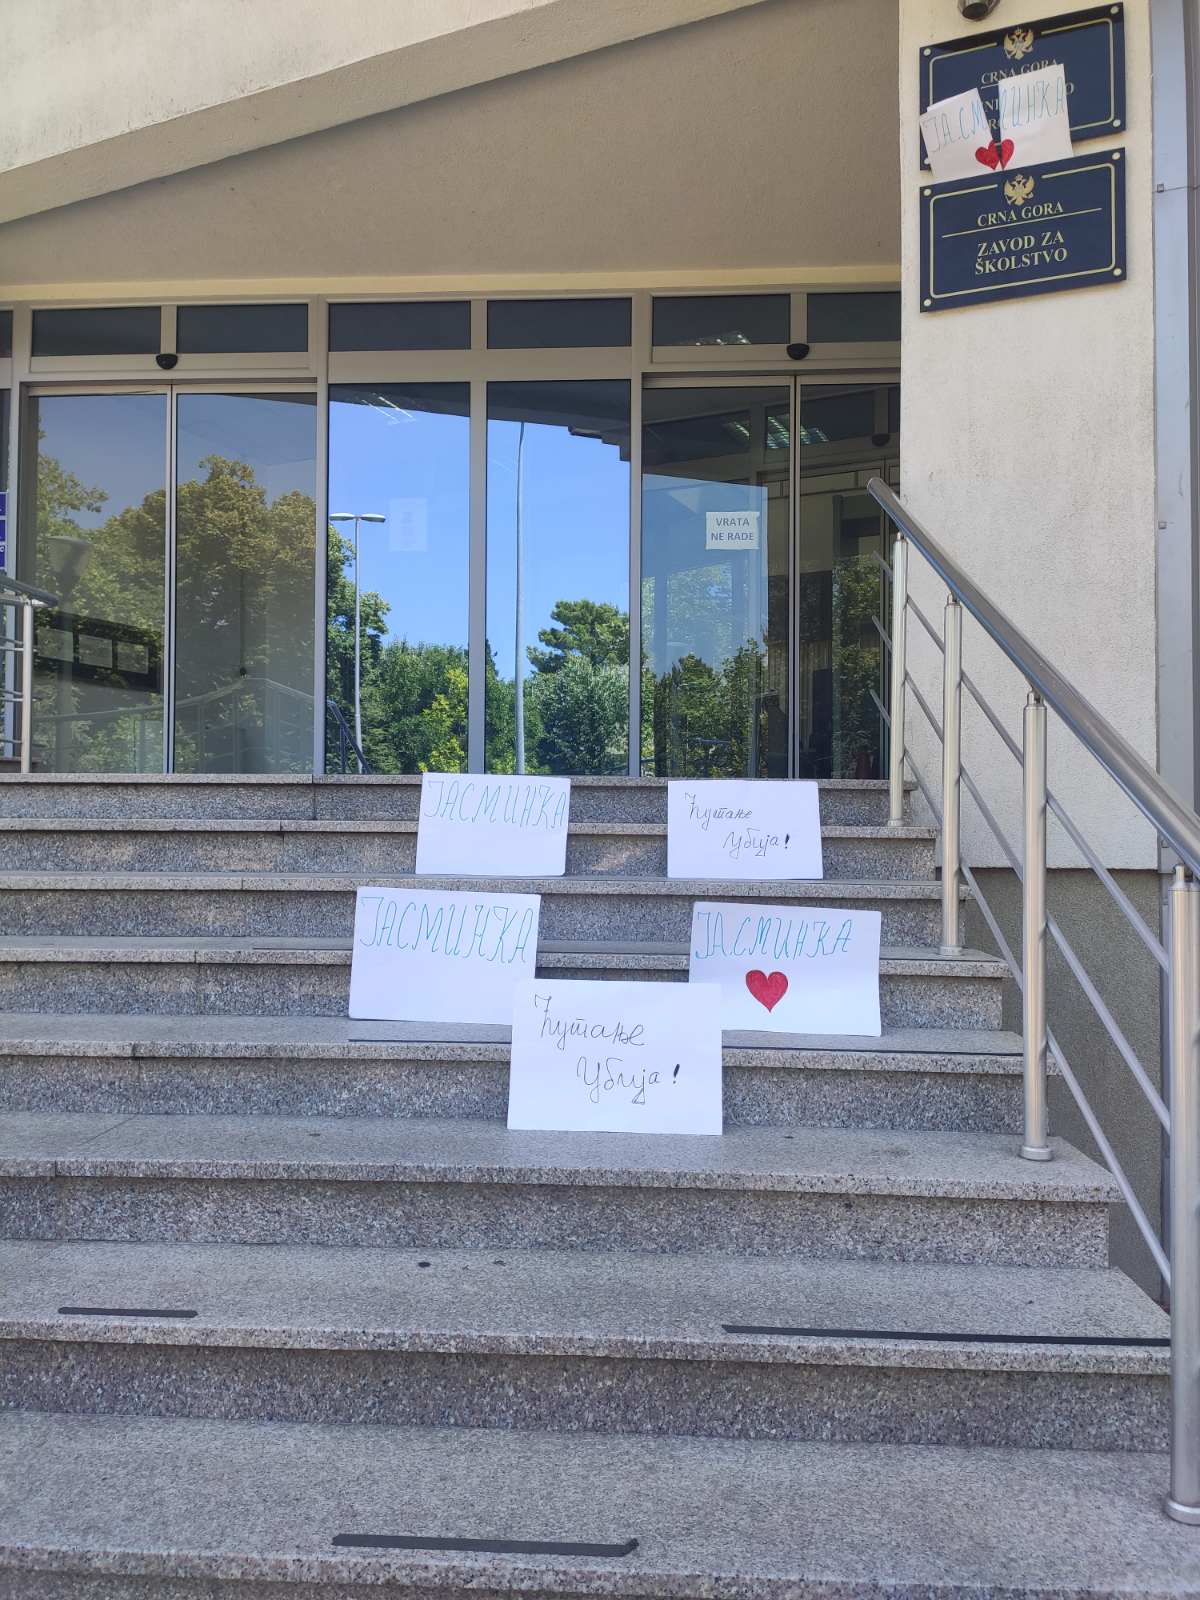 CRNA GORA
ЈАСМИНКА
CRNA GORA
ZAVOD ZA
ŠKOLSTVO
VRATA
NE RADE
ЈАСМИНКА
Ћутање
Убија!
ЈАСМИНКА
ЈАСМИНКА
Ћутање
Убија!